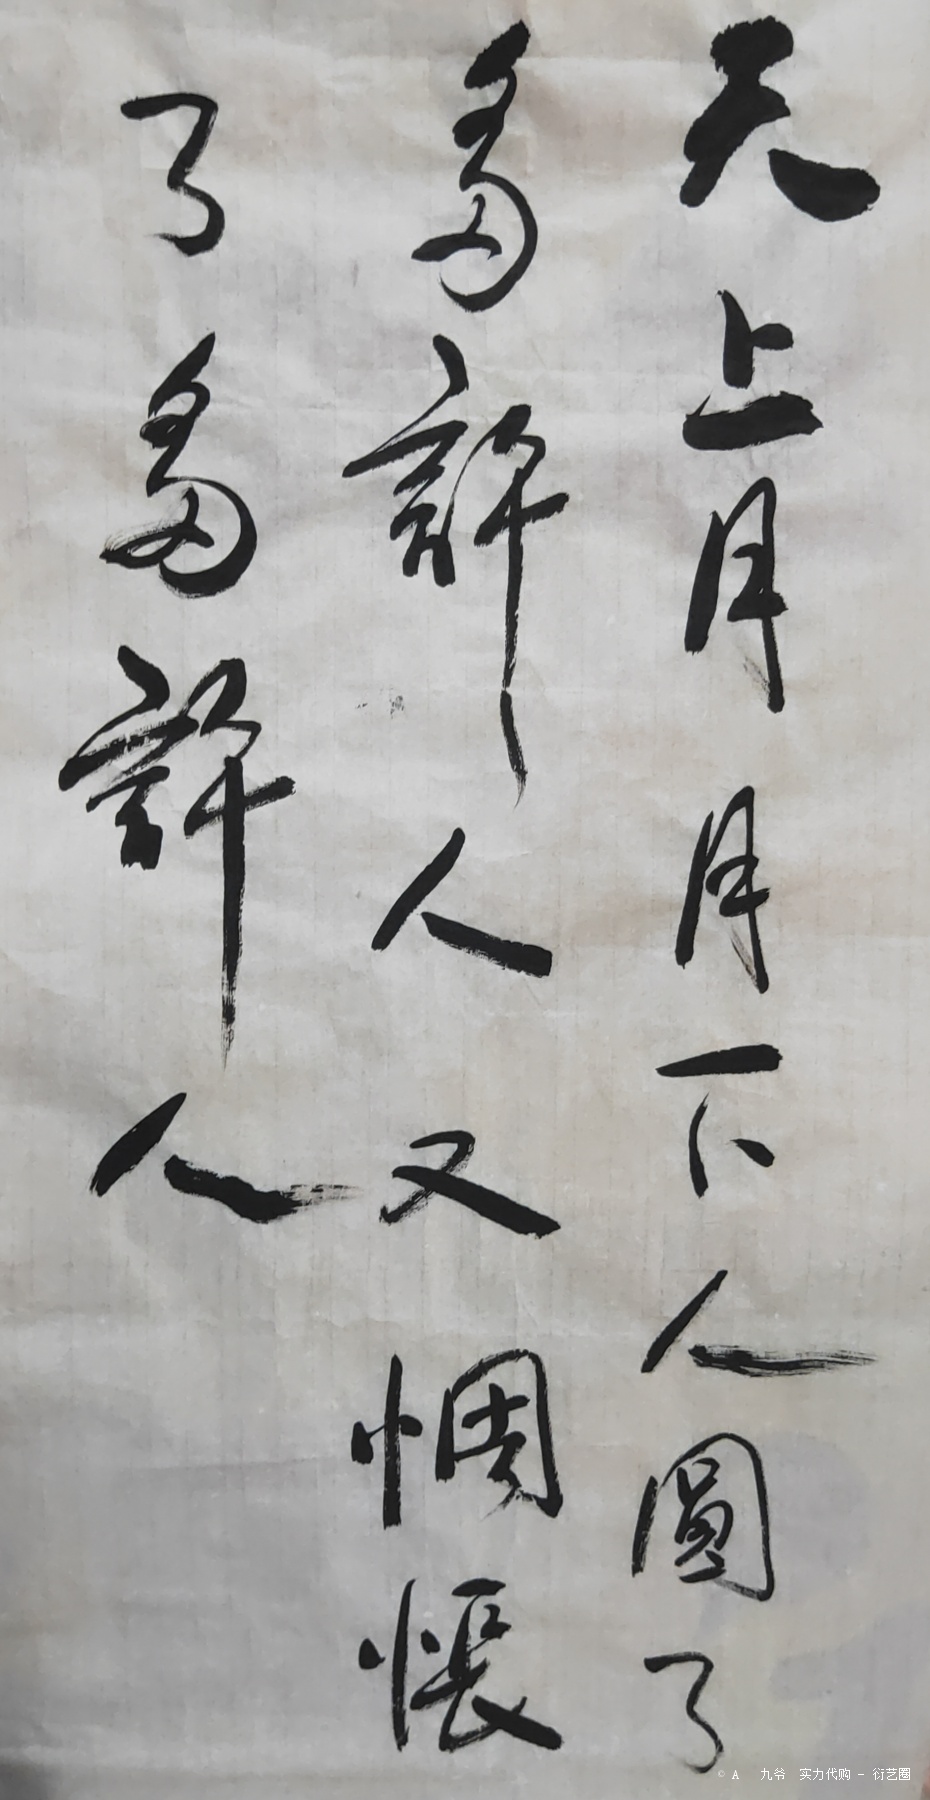 天上月月下人圓了
多許人又惆悵
了多許人
© A 九爷 实力代购 - 衍艺圈